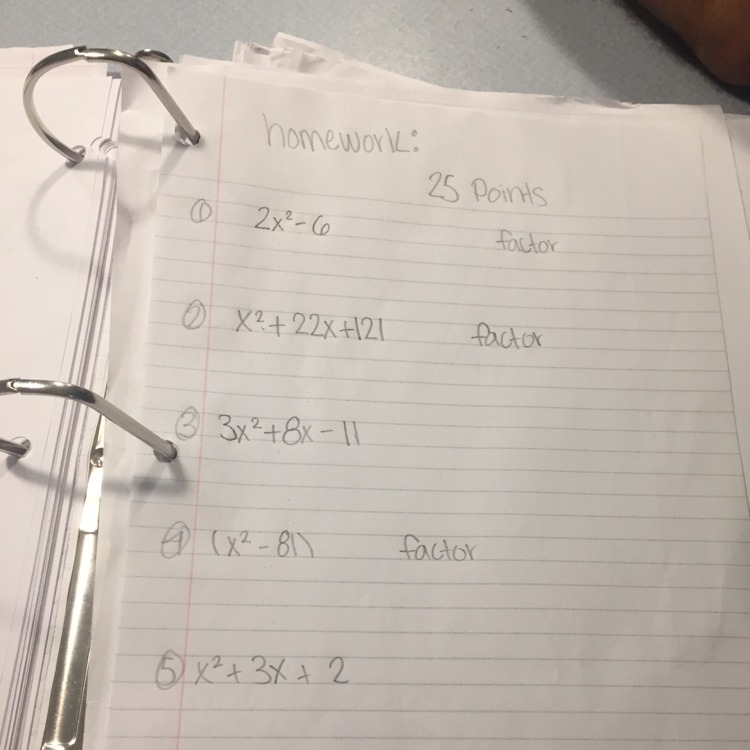 homework:
25 Points
① 2x² - 6 factor
② x² + 22x + 121 factor
③ 3x² + 8x - 11
④ (x² - 81) factor
⑤ x² + 3x + 2